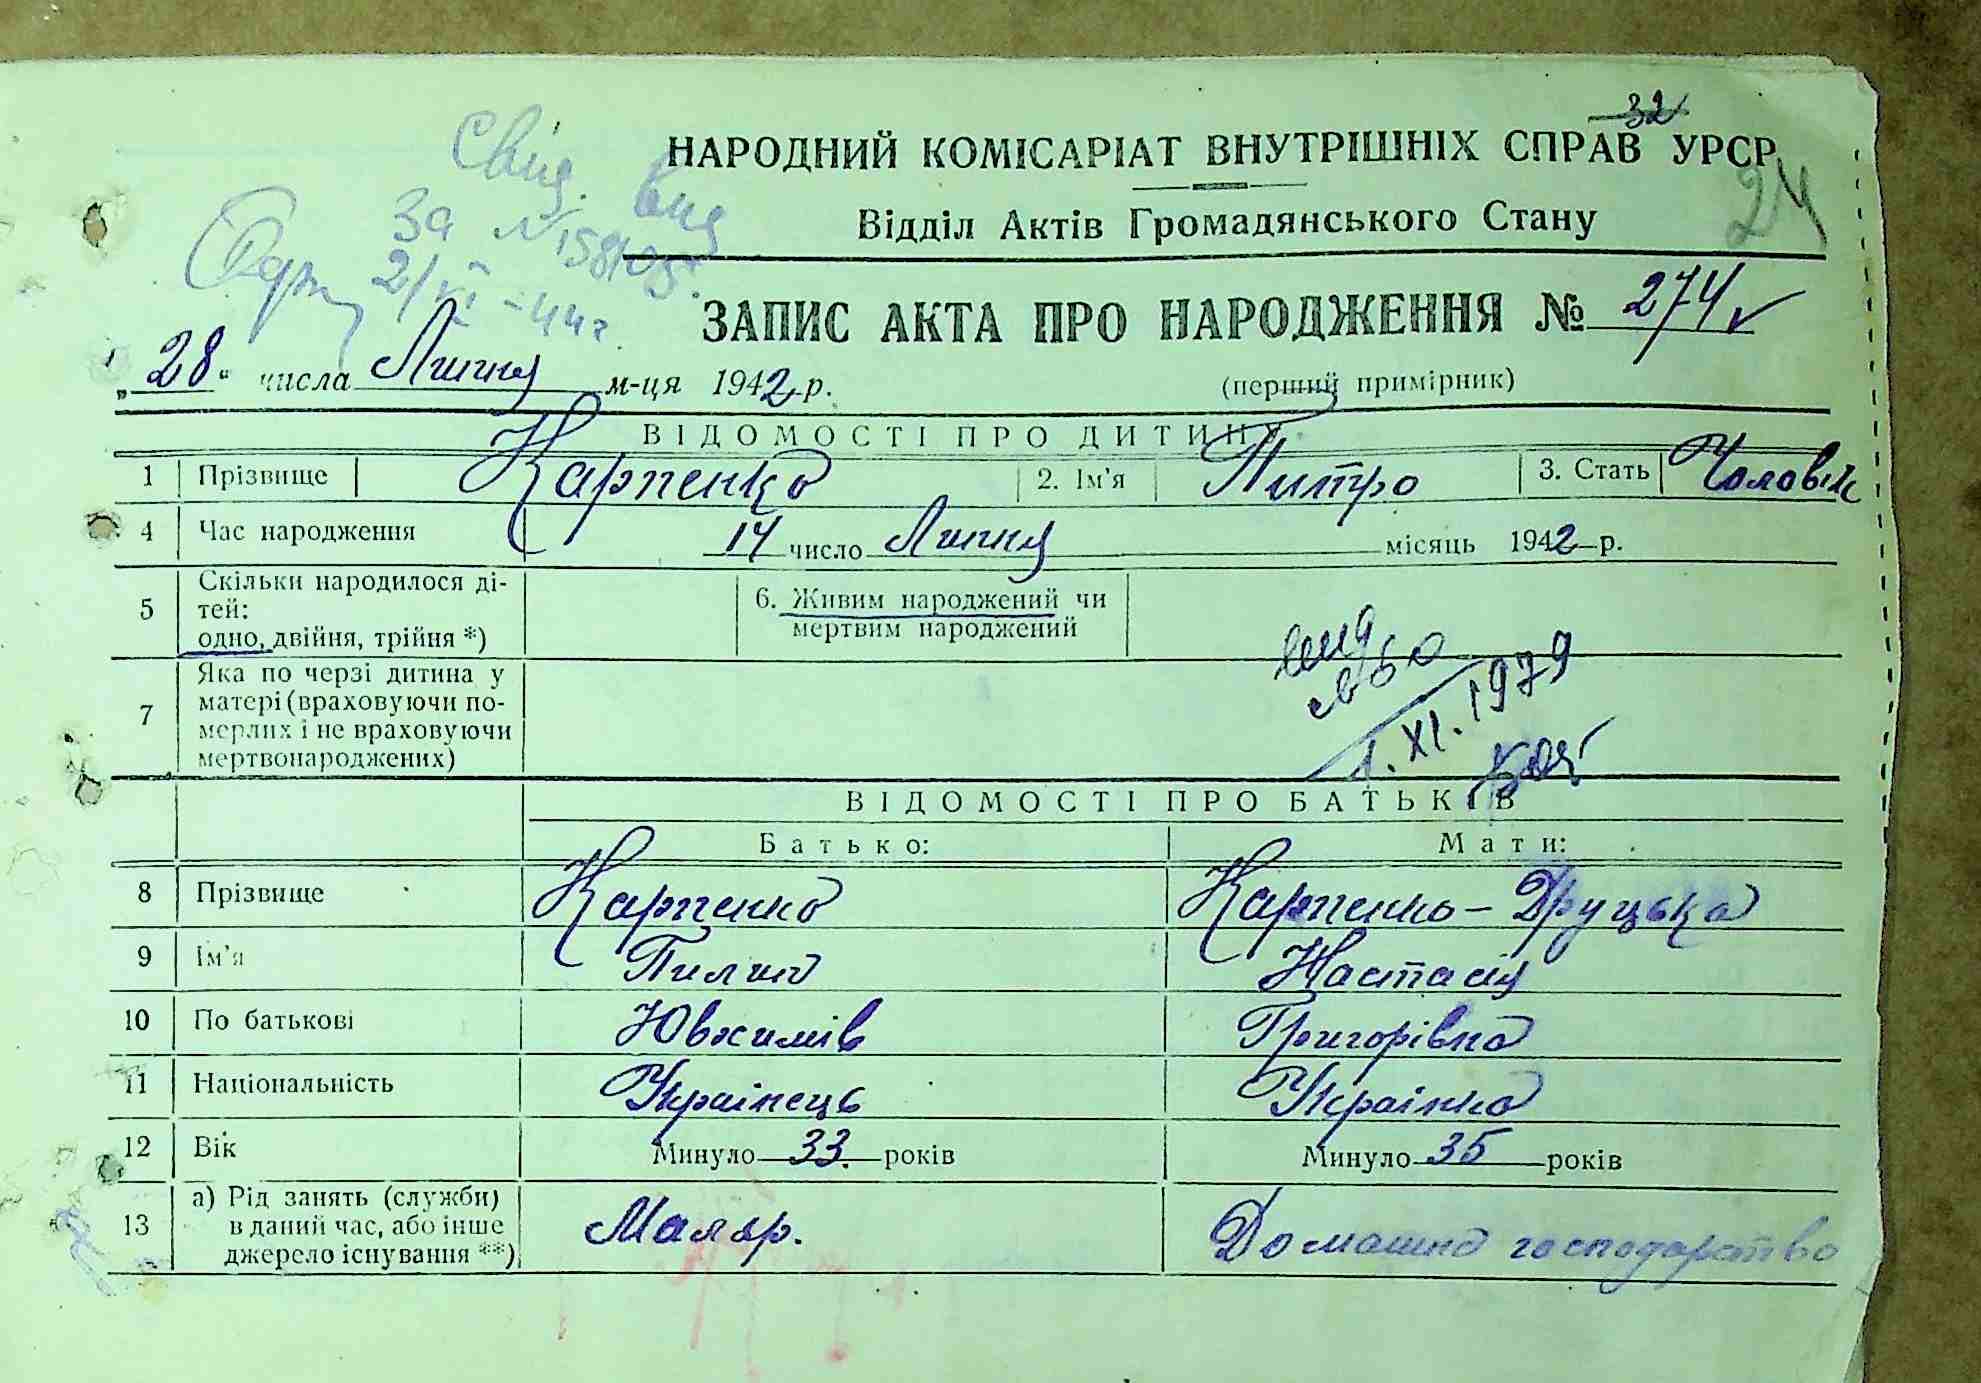 32
НАРОДНИЙ КОМІСАРІАТ ВНУТРІШНІХ СПРАВ УРСР
24
Відділ Актів Громадянського Стану
Свід. вид
за № 158105.
21/VI-44 г
ЗАПИС АКТА ПРО НАРОДЖЕННЯ № 274
„28“ числа Липня м-ця 1942 р. (перший примірник)
ВІДОМОСТІ ПРО ДИТИНУ
1 Прізвище Карпенко 2. Ім'я Питро 3. Стать Чоловік
4 Час народження 14 число Липня місяць 1942 р.
5 Скільки народилося ді-
тей:
одно, двійня, трійня *)
6. Живим народжений чи
мертвим народжений
7 Яка по черзі дитина у
матері (враховуючи по-
мерлих і не враховуючи
мертвонароджених)
1. XI. 1979
ВІДОМОСТІ ПРО БАТЬКІВ
Батько: Мати:
8 Прізвище Карпенко Карпенко-Друцька
9 Ім'я Пилип Настасія
10 По батькові Григорівна
11 Національність Українець Українка
12 Вік Минуло 33. років Минуло 35 років
13 а) Рід занять (служби)
в даний час, або інше
джерело існування **)
Маляр. Домашнє господарство